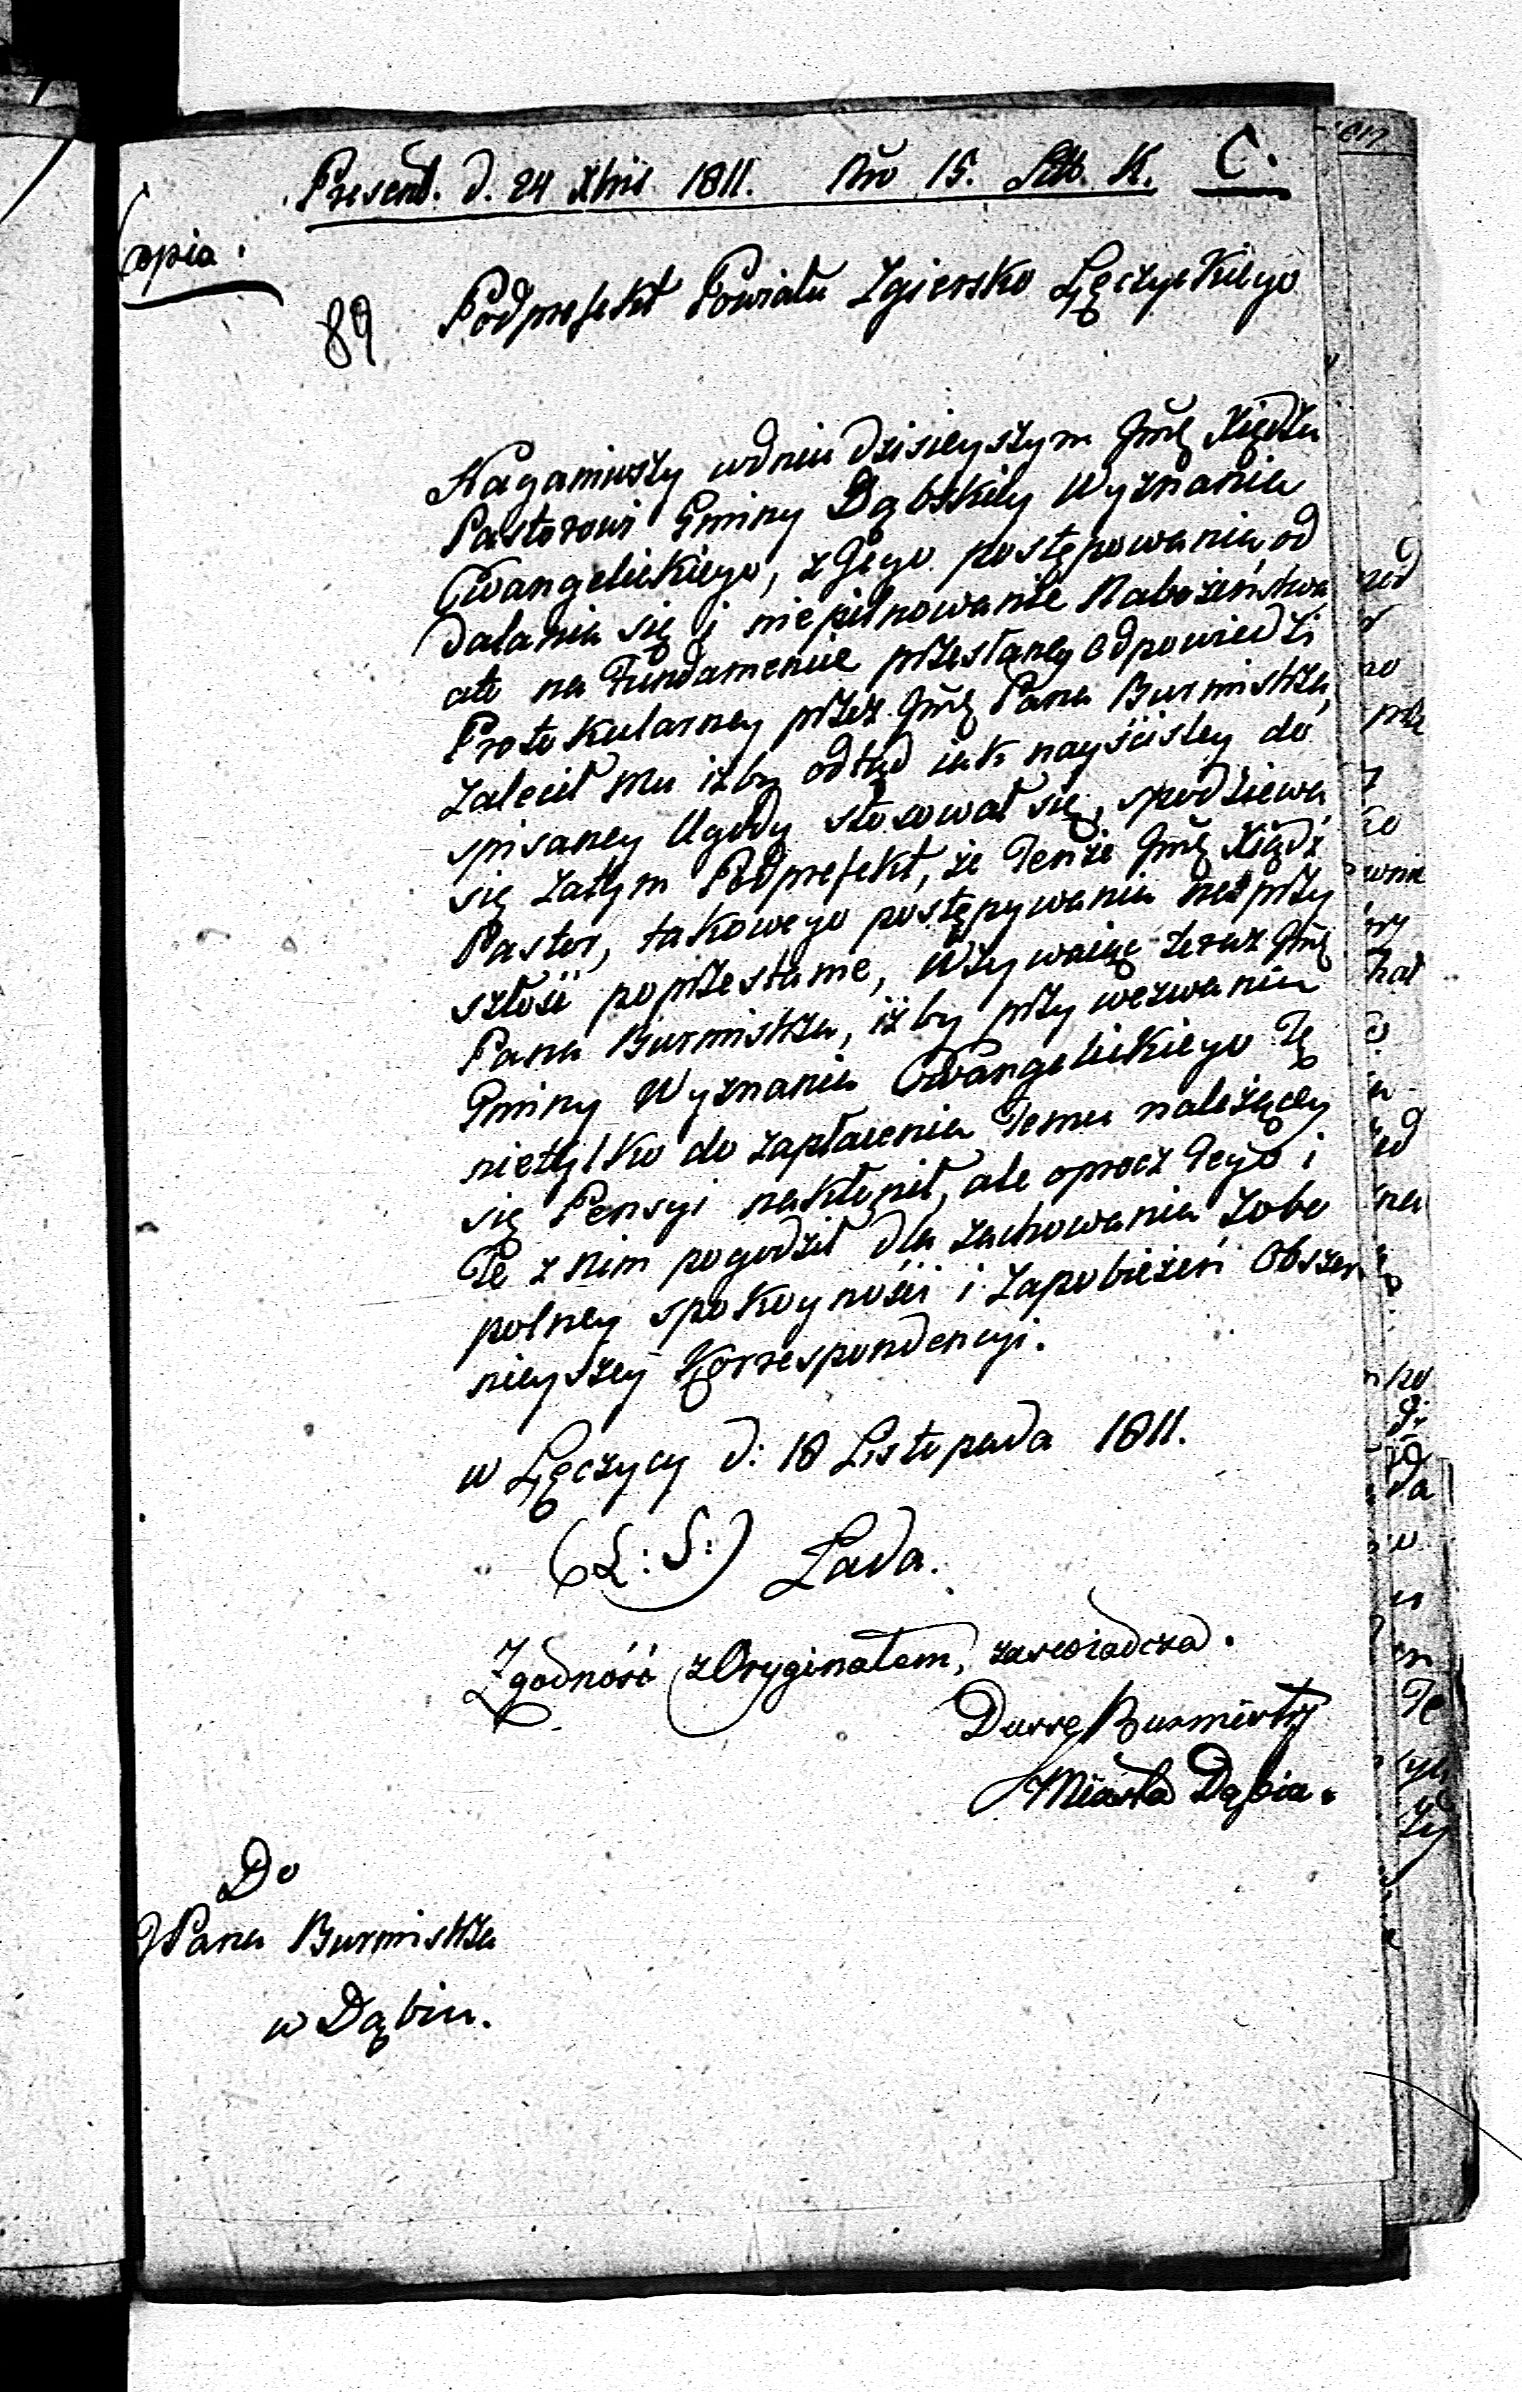 Present. d. 24 Xbris 1811. Nro 15. Litt. K. C.
Copia.
89 Podprefekt Powiatu Zgiersko Łęczyckiego
Naganiwszy w dniu dzisieyszym Jmć Xiędzu
Pastorowi Gminy Dąbskiey Wyznania
Ewangelickiego, z Jego postępowania od
dalania się i niepilnowanie Nabożeństwa
ato na Fundamencie przesłaney odpowiedzi
Protokularney przez Jmć Pana Burmistrza,
zalecił mu iżby odtąd iak nayściśley do
spisaney Ugody stosował się, spodziewa
się zatym Podprefekt, że Tenże Jmć Xiądz
Pastor, takowego postępywania na przy
szłość poprzestanie, Wzywaiąc teraz Jmć
Pana Burmistrza, iżby przy wezwaniu
Gminy Wyznania Ewangelickiego Tę
nietylko do zapłacenia Temu należącey
się Pensyi nakłonił, ale oprocz tego i
Te z nim pogodził dla zachowania zobo
polney spokoyności i zapobieżeń Obszer
nieyszey Korrespondencyi.
w Łęczycy d: 18 Listopada 1811.
(L: S:) Łada.
Zgodność z Oryginałem, zaswiadcza.
Burmistrz
Miasta Dąbia.
Do
JPana Burmistrza
w Dąbiu.